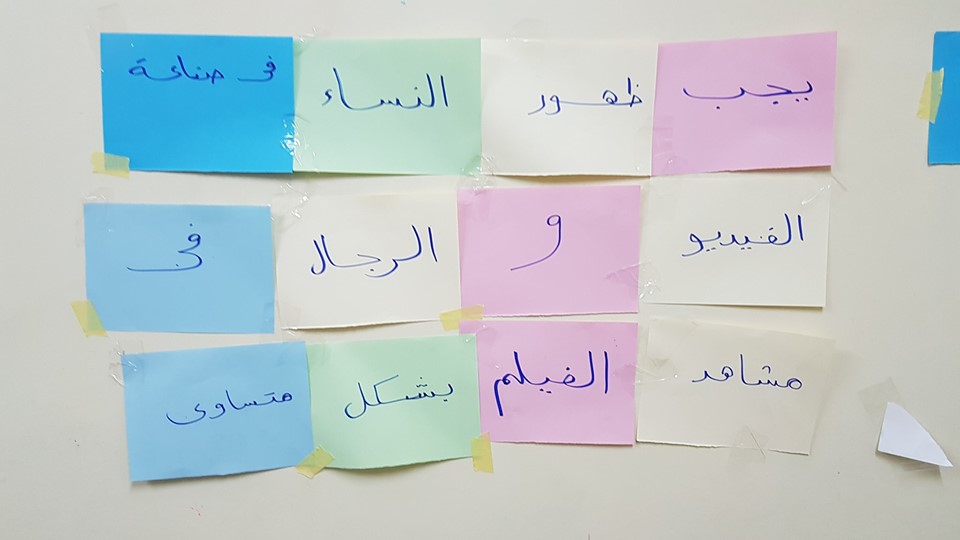 يجب ظهور النساء فى صناعة
الفيديو و الرجال فى
مشاهد الفيلم بشكل متساوى